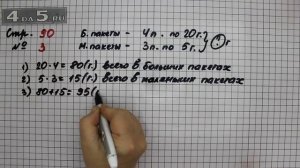 4DA5.RU
Стр. 90 Б. пакеты - 4п. по 20г.
№ 3 М. пакеты - 3п. по 5г. ? г
1) 20·4 = 80(г.) всего в больших пакетах
2) 5·3 = 15(г.) всего в маленьких пакетах
3) 80+15= 95(